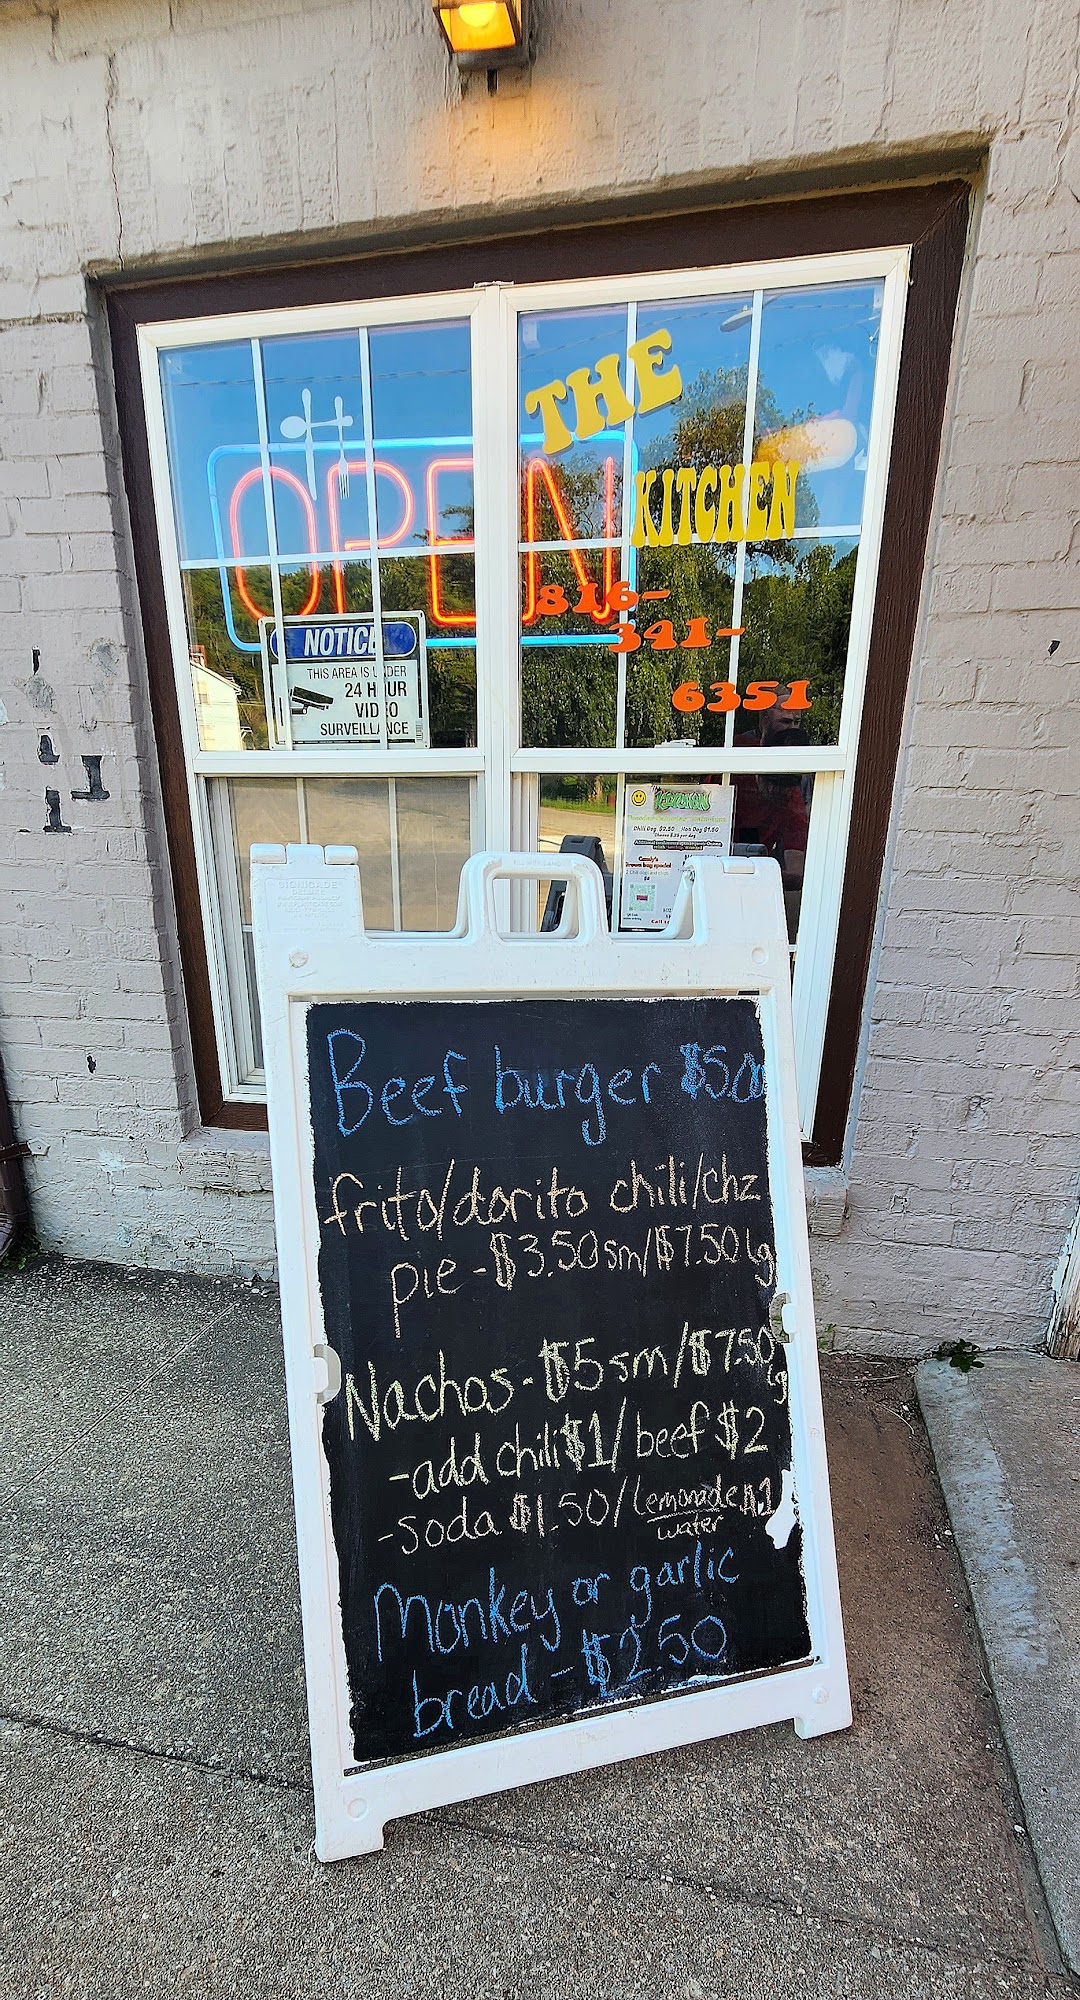 THE
KITCHEN
OPEN
816-
341-
6351
NOTICE
THIS AREA IS UNDER
24 HOUR
VIDEO
SURVEILLANCE
KITCHEN
Chili Dog $2.50 Hot Dog $1.50
SIGNICADE
DELUXE
Beef burger $500
frito/dorito chili/chz
pie - $3.50 sm/$7.50 lg
Nachos - $5 sm/$7.50
lg
-add chili $1/beef $2
-soda $1.50/Lemonade $1
water
Monkey or garlic
bread - $2.50